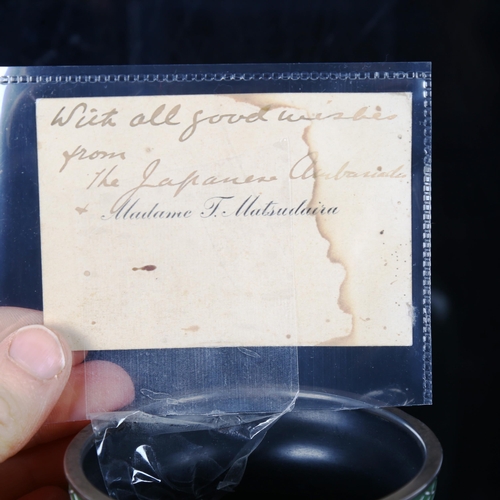 With all good wishes
from
The Japanese Ambassador
+ Madame T. Matsudaira